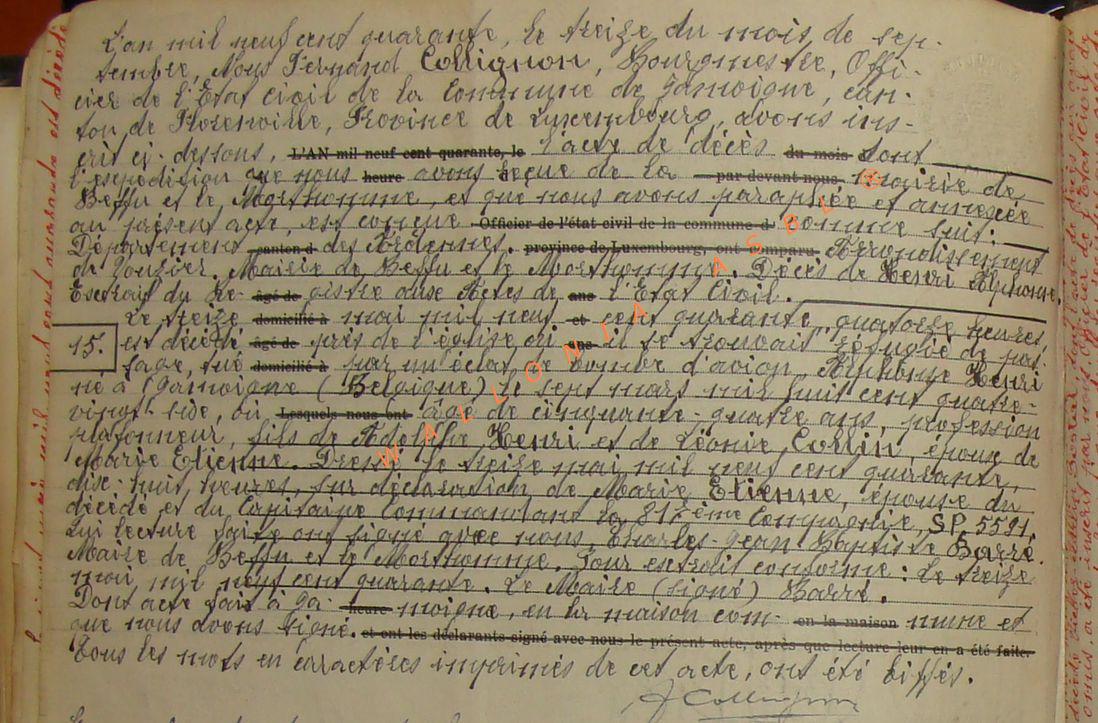 L'an mil neuf cent quarante, le treize du mois de sep-
tembre, Nous Fernand Collignon, Bourgmestre, Offi-
cier de l'Etat civil de la Commune de Jamoigne, can-
ton de Florenville, Province de Luxembourg, avons ins-
crit ci-dessous, L'AN mil neuf cent quarante, le l'acte de décès du mois d dont
l'expédition que nous heure avons reçue de la par devant nous, Mairie de
Beffu et le Morthomme, et que nous avons paraphée et annexée
au présent acte, est conçue Officier de l'état civil de la commune d comme suit:
Département canton d des Ardennes. province de Luxembourg, ont comparu Arrondissement
de Vouziers. Mairie de Beffu et le Morthomme. Décès de Henri Alphonse.
Extrait du Re- âgé de gistre aux Actes de ans l'Etat Civil.
Le treize domicilié à mai mil neuf et cent quarante, quatorze heures
15. est décédé âgé de près de l'église où ans il se trouvait réfugié de pas-
sage, tué domicilié à par un éclat de bombe d'avion, Alphonse Henri
né à Jamoigne (Belgique) le sept mars mil huit cent quatre-
vingt-six, Lesquels nous ont âgé de cinquante-quatre ans, profession
plafonneur, fils de Adolphe Henri et de Léonie Collin, époux de
Marie Etienne. Dressé le treize mai mil neuf cent quarante,
dix-huit heures, sur déclaration de Marie Etienne, épouse du
décédé et du Capitaine Commandant la 817ème Compagnie, SP 5591,
qui lecture faite ont signé avec nous, Charles-Jean Baptiste Barré.
Maire de Beffu et le Morthomme. Pour extrait conforme: Le treize
mai, mil neuf cent quarante. Le Maire (signé) Barré.
Dont acte fait à Ja- heure moigne, en la maison com- en la maison mune et
que nous avons signé. et ont les déclarants signé avec nous le présent acte, après que lecture leur en a été faite.
Tous les mots en caractères imprimés de cet acte, ont été biffés.
F Collignon
WALLONIA ASBL ©